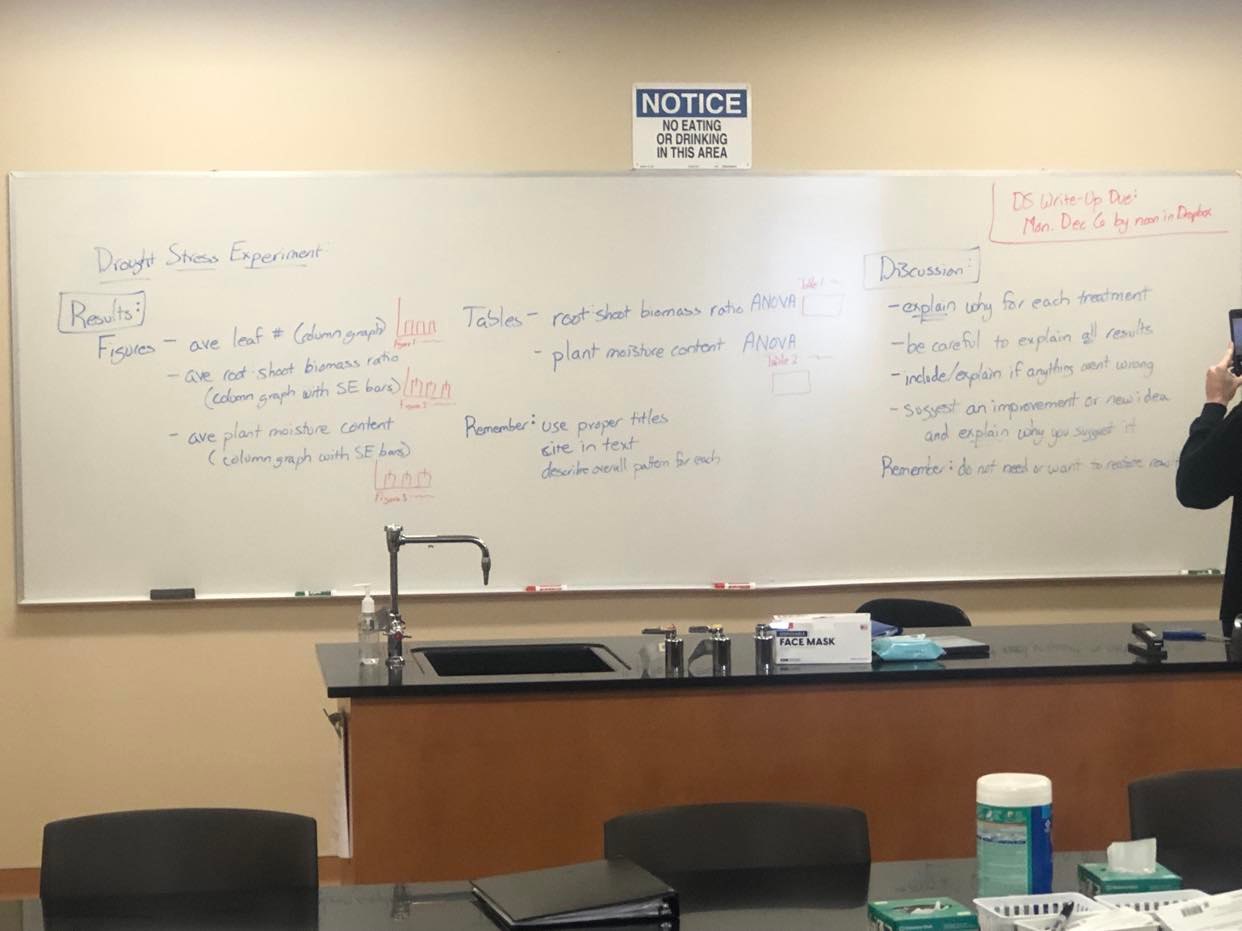 NOTICE
NO EATING
OR DRINKING
IN THIS AREA
DS Write-Up Due:
Mon. Dec 6 by noon in Dropbox
Drought Stress Experiment:
Results:
Figures - ave leaf # (column graph)
Figure 1
- ave root:shoot biomass ratio
(column graph with SE bars)
Figure 2
- ave plant moisture content
(column graph with SE bars)
Figure 3
Tables - root:shoot biomass ratio ANOVA
Table 1
- plant moisture content ANOVA
Table 2
Remember: use proper titles
site in text
describe overall pattern for each
Discussion:
- explain why for each treatment
- be careful to explain all results
- include/explain if anything went wrong
- suggest an improvement or new idea
and explain why you suggest it
Remember: do not need or want to restate
FACE MASK